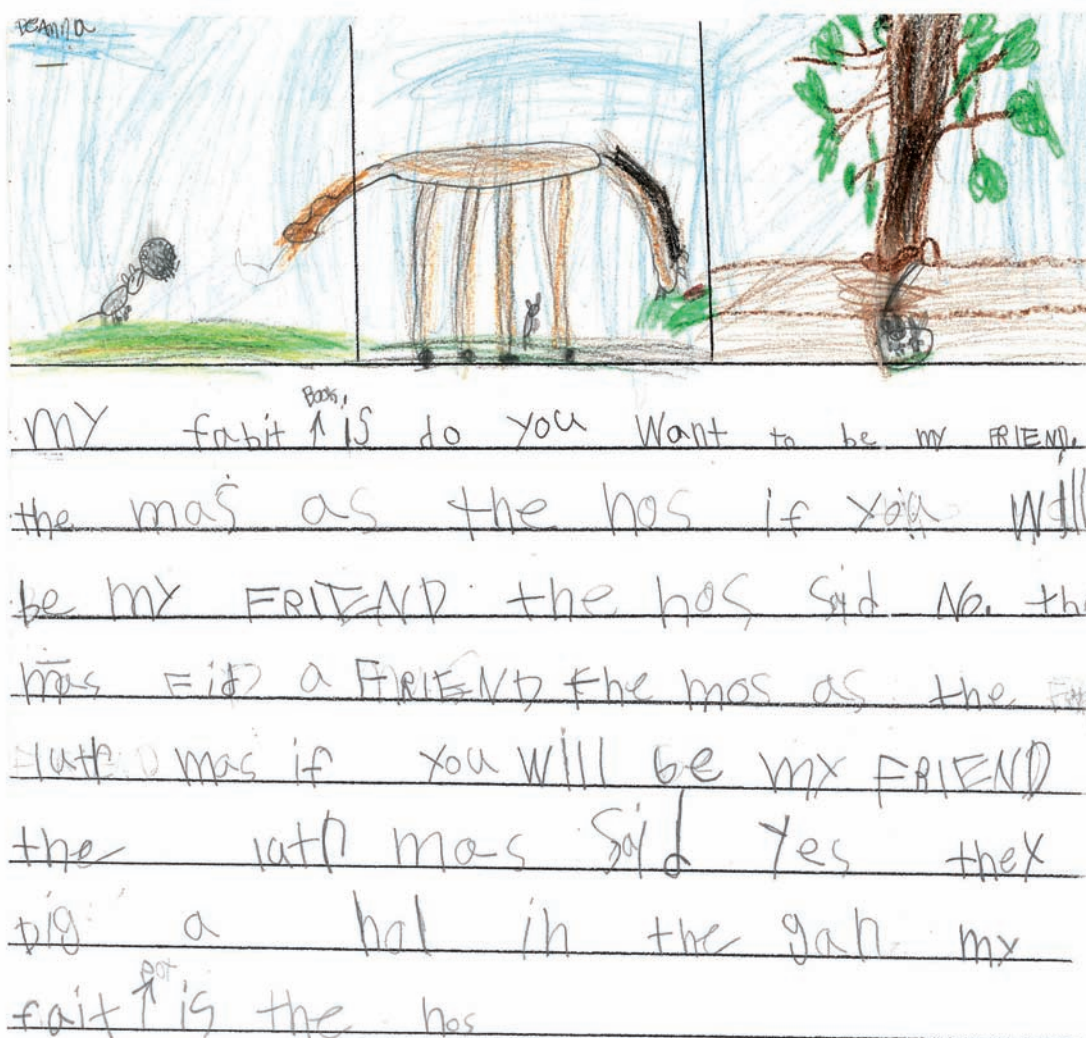 DeAnna
MY fabit ↑ Book, is do you Want to be my FRIEND.
the mas as the hos if you Will
be MY FRIEND the hos Said No. the
mas Fid a FRIEND the mos as the
uth mas if you Will be my FRIEND
the uth mas Said Yes they
Dig a hol in the gan my
fait ↑ is the hos